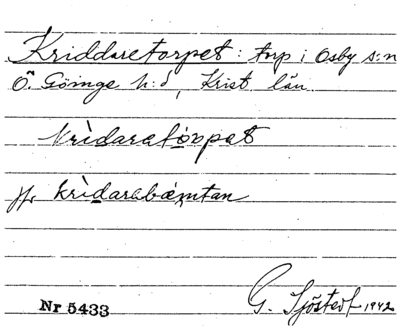 Kriddaretorpet: torp i Osby s:n
Ö. Göinge h:d, Krist. län
krìdaratórpet
jfr krìdarabæntan
Nr 5433
G. Sjöstedt 1942